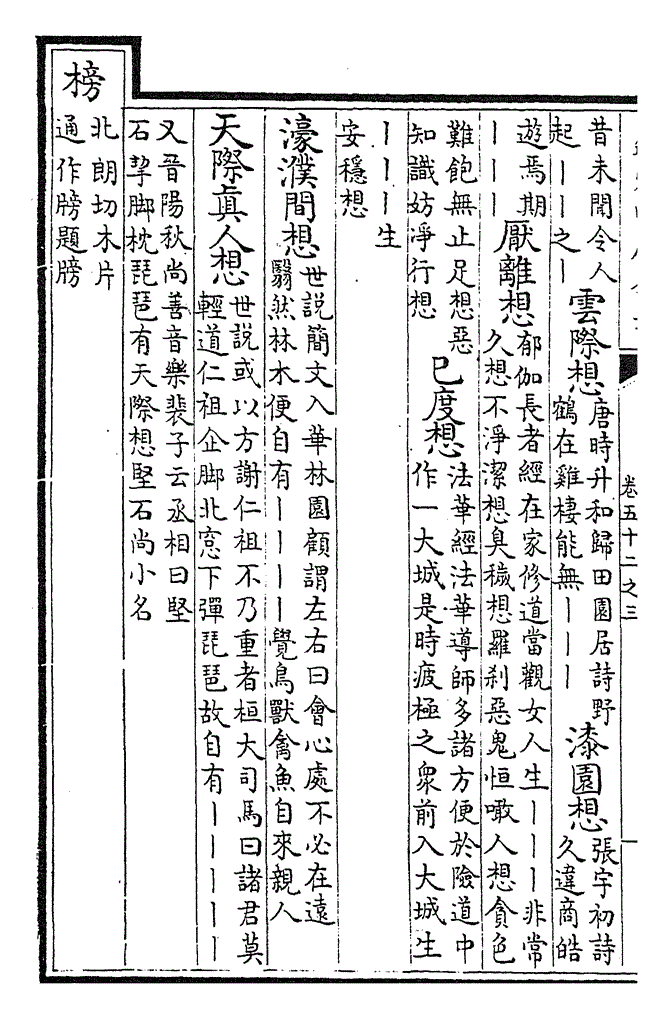 卷五十二之三
一
昔未聞令人
起｜｜之｜
雲際想
唐時升和歸田園居詩野
鶴在雞棲能無｜｜｜
漆園想
張宇初詩
久違商皓
遊焉期
｜｜｜
厭離想
郁伽長者經在家修道當觀女人生｜｜｜非常
久想不淨潔想臭穢想羅刹惡鬼恒噉人想貪色
難飽無止足想惡
知識妨淨行想
已度想
法華經法華導師多諸方便於險道中
作一大城是時疲極之衆前入大城生
｜｜｜生
安穩想
濠濮間想
世説簡文入華林園顧謂左右曰會心處不必在遠
翳然林木便自有｜｜｜｜覺鳥獸禽魚自來親人
天際眞人想
世説或以方謝仁祖不乃重者桓大司馬曰諸君莫
輕道仁祖企脚北窓下彈琵琶故自有｜｜｜｜｜
又晉陽秋尚善音樂裴子云丞相曰堅
石挈脚枕琵琶有天際想堅石尚小名
榜
北朗切木片
通作牓題牓